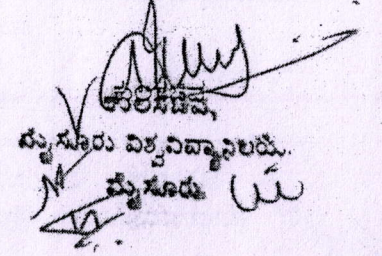 ಕುಲಸಚಿವ,
ಮೈಸೂರು ವಿಶ್ವವಿದ್ಯಾನಿಲಯ.
ಮೈಸೂರು